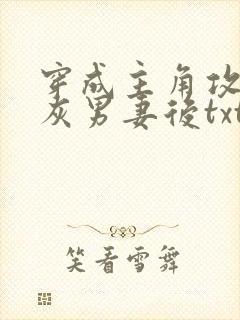 穿成主角攻
灰男妻後txt
笑看雪舞